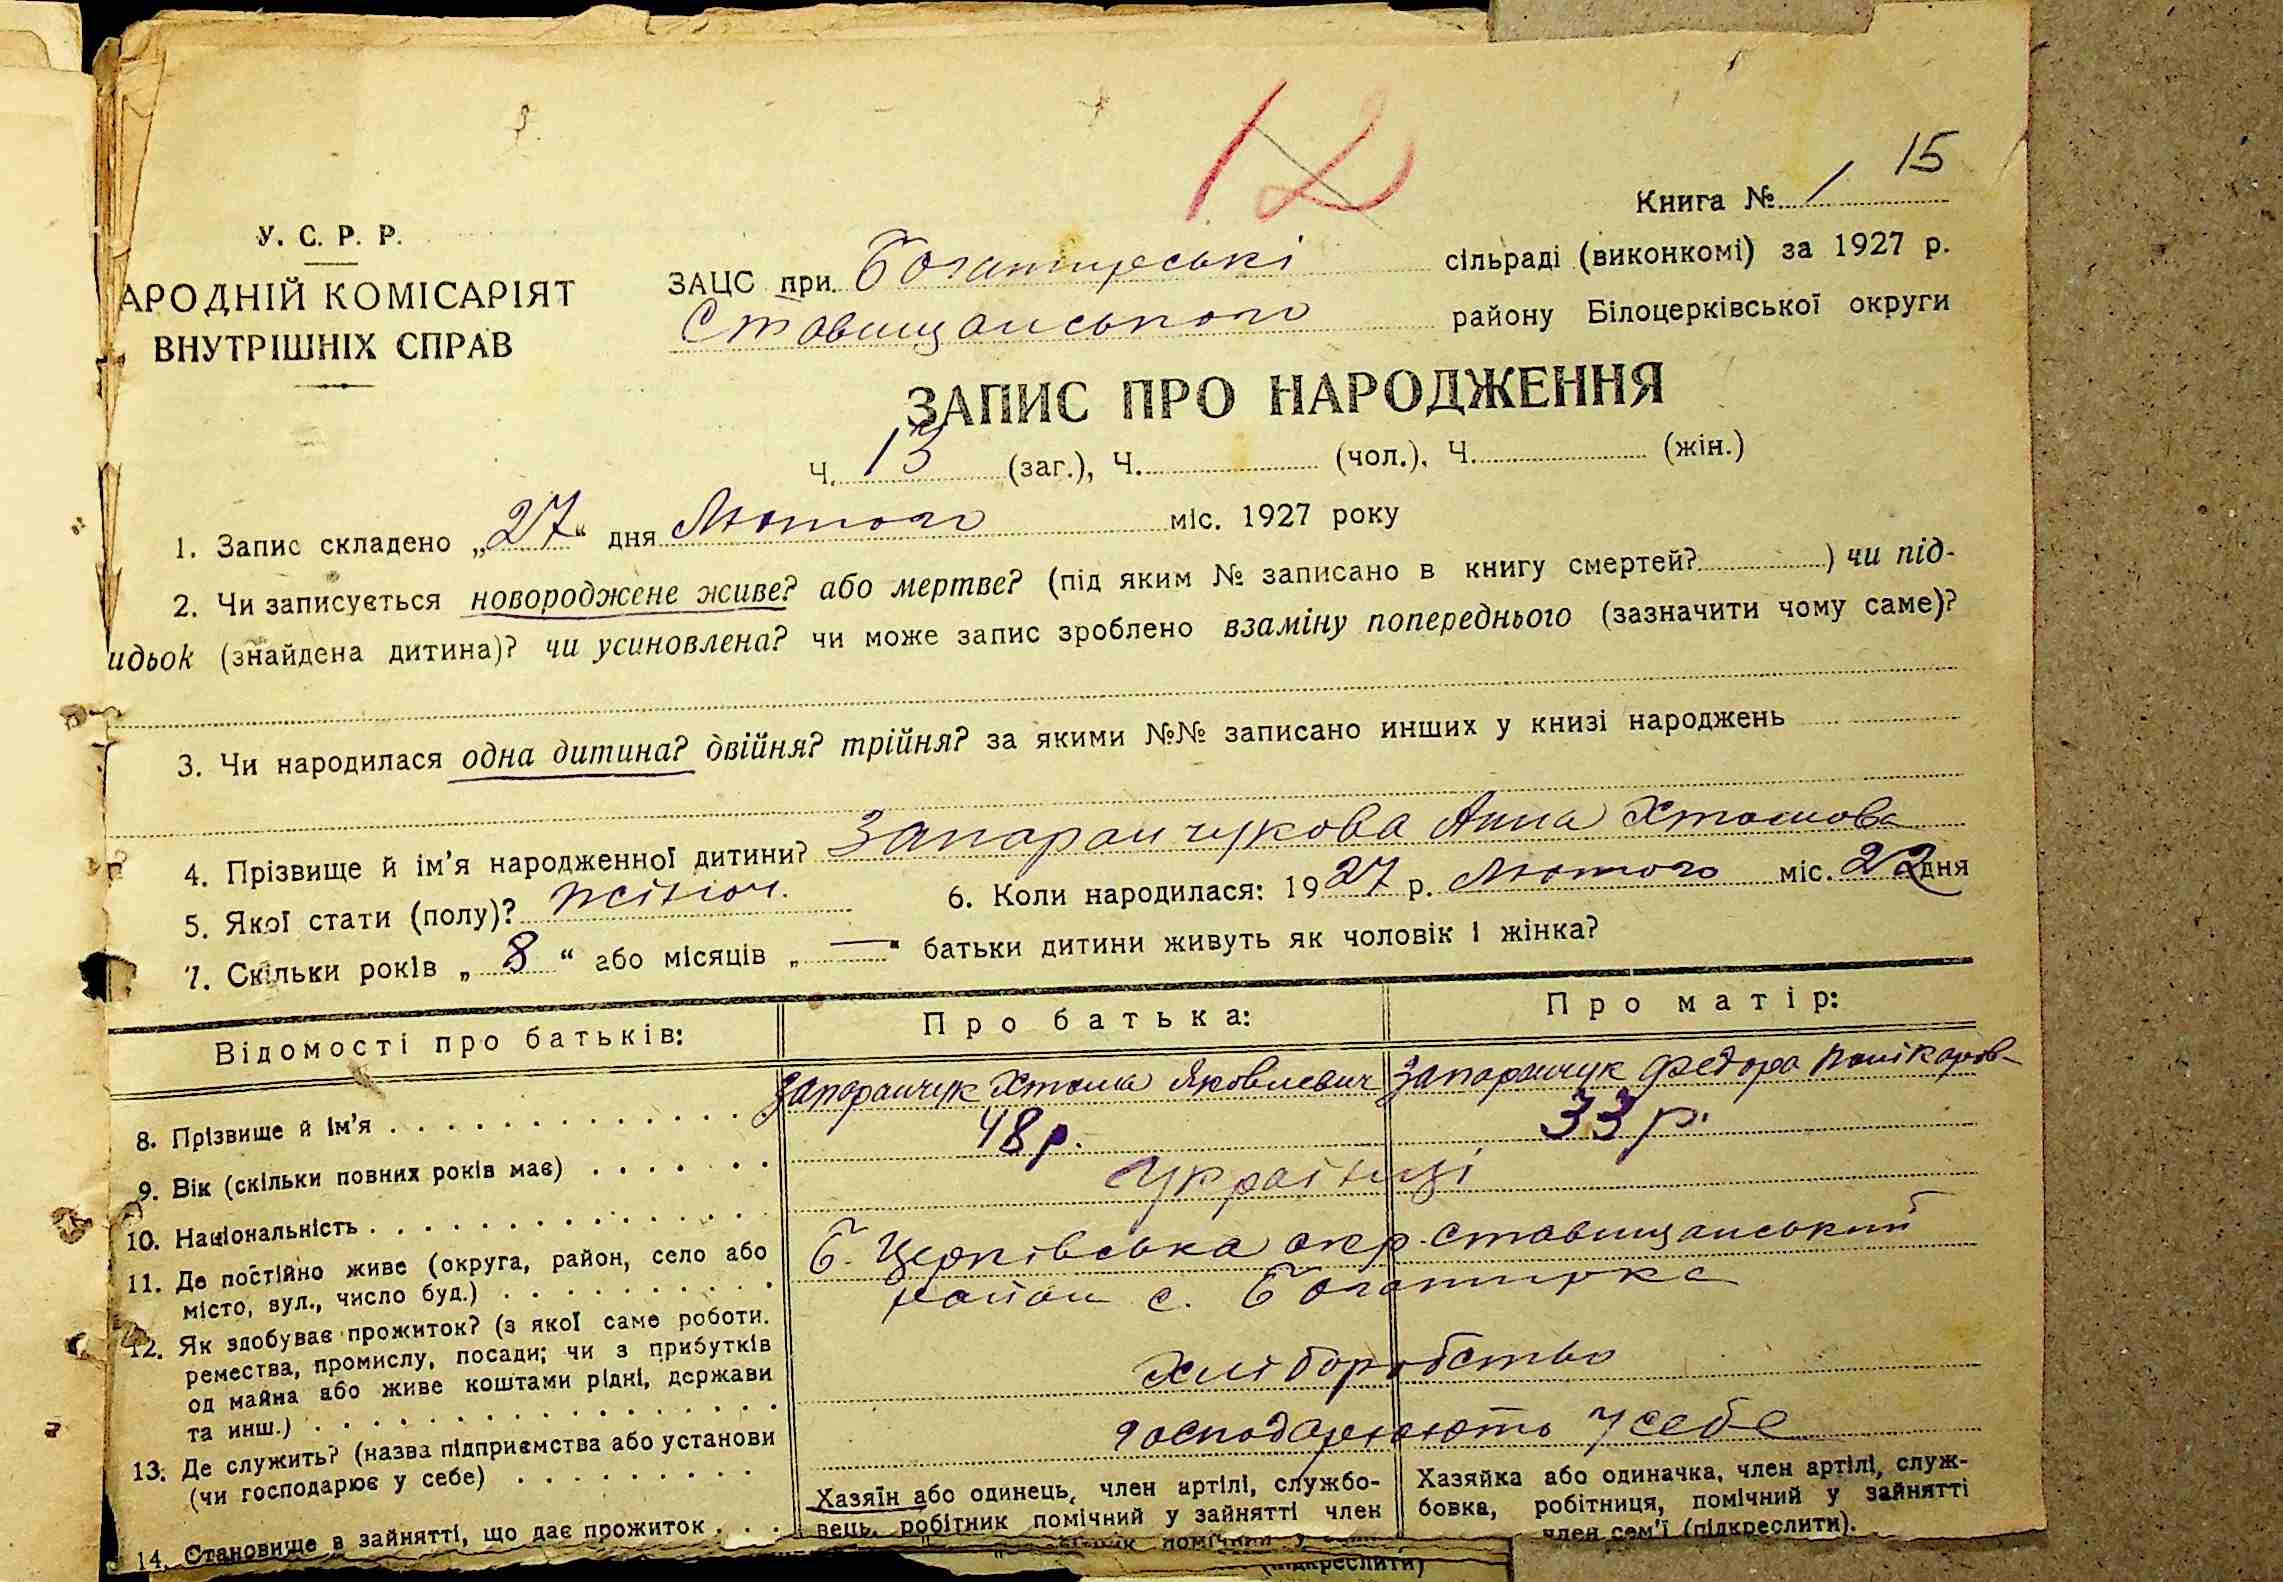 12
15
Книга № 1
У. С. Р. Р.
АРОДНІЙ КОМІСАРІЯТ
ВНУТРІШНІХ СПРАВ
ЗАЦС при Богатирські сільраді (виконкомі) за 1927 р.
Ставищанського району Білоцерківської округи
ЗАПИС ПРО НАРОДЖЕННЯ
Ч. 13 (заг.), Ч. (чол.), Ч. (жін.)
1. Запис складено „27“ дня Лютого міс. 1927 року
2. Чи записується новороджене живе? або мертве? (під яким № записано в книгу смертей? ) чи під-
идьок (знайдена дитина)? чи усиновлена? чи може запис зроблено взаміну попереднього (зазначити чому саме)?
3. Чи народилася одна дитина? двійня? трійня? за якими №№ записано инших у книзі народжень
4. Прізвище й ім’я народженної дитини? Запаранчукова Анна Хтомова
5. Якої стати (полу)? жіноч. 6. Коли народилася: 1927 р. Лютого міс. 22 дня
7. Скільки років „8“ або місяців „—“ батьки дитини живуть як чоловік і жінка?
Відомості про батьків: Про батька: Про матір:
8. Прізвище й ім’я Запаранчук Хтома Яковлевич Запаранчук Федора Полікаров-
9. Вік (скільки повних років має) 48 р. 33 р.
10. Національність Українці
11. Де постійно живе (округа, район, село або Б. Церківська окр. Ставищанський
місто, вул., число буд.) район с. Богатирка
12. Як здобуває прожиток? (з якої саме роботи.
ремества, промислу, посади; чи з прибутків
од майна або живе коштами рідні, держави Хліборобство
та инш.)
13. Де служить? (назва підприємства або установи господарюють у себе
(чи господарює у себе)
14. Становище в зайнятті, що дає прожиток
Хазяїн або одинець, член артілі, службо-
вець, робітник помічний у зайнятті член
Хазяйка або одиначка, член артілі, служ-
бовка, робітниця, помічний у зайнятті
член сем’ї (підкреслити).
(підкреслити)